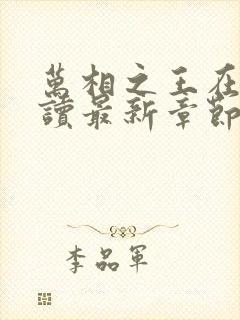 萬相之王在
讀最新章節
李品軍